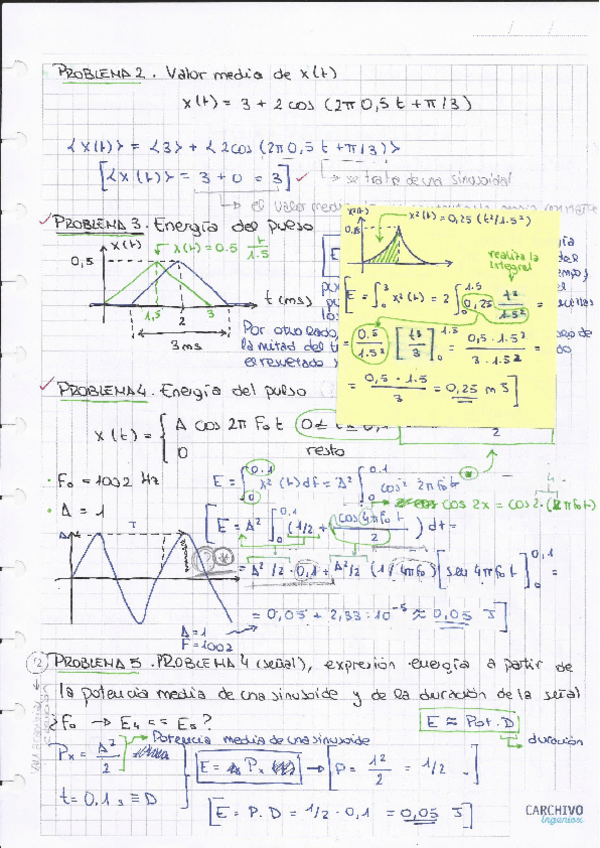 PROBLEMA 2. Valor medio de x(t)
x(t) = 3 + 2 cos (2π 0,5 t + π/3)
<x(t)> = <3> + <2cos (2π 0,5 t + π/3)>
[<x(t)> = 3 + 0 = 3] ✓ → se trata de una sinusoidal
↳ el valor medio
✓ PROBLEMA 3. Energía del pulso
x(t) x(t) = 0.5 t/1.5
0,5
1,5 2 3 t (ms)
3 ms
Por otro lado
la mitad del
el resultado
x²(t) x²(t) = 0,25 (t²/1.5²)
realiza la
integral
[E = ∫₀³ x²(t) = 2 ∫₀^1.5 0,25 t²/1.5² =
= 0.5/1.5² [t³/3]₀^1.5 = 0,5 · 1.5³ / 3 · 1.5² =
= 0,5 · 1.5 / 3 = 0,25 mJ]
✓ PROBLEMA 4. Energía del pulso
x(t) = { A cos 2π F₀ t 0 ≤ t ≤ 0,1
0 resto
2
· F₀ = 1002 Hz
· A = 1
E = ∫₀^0.1 x²(t) df = A² ∫₀^0.1 cos² 2πf₀t
cos 2x = cos 2·(2πf₀t)
[E = A² ∫₀^0,1 (1/2 + cos(4πf₀t)/2) dt =
A T
= A²/2 · 0,1 + A²/2 (1/4πf₀) [sen 4πf₀t]₀^0,1 =
= 0,05 + 2,33·10⁻⁵ ≈ 0,05 J]
A = 1
F = 1002
PROBLEMA 5. PROBLEMA 4 (señal), expresión energía a partir de
la potencia media de una sinusoide y de la duración de la señal
¿F₀ → E₄ == E₅? E ≈ Pot. D
duración
Potencia media de una sinusoide
Pₓ = A²/2 E = Pₓ → [P = 1²/2 = 1/2]
t = 0.1 s ≡ D
[E = P. D = 1/2 · 0,1 = 0,05 J]
CARCHIVO
Ingeniox